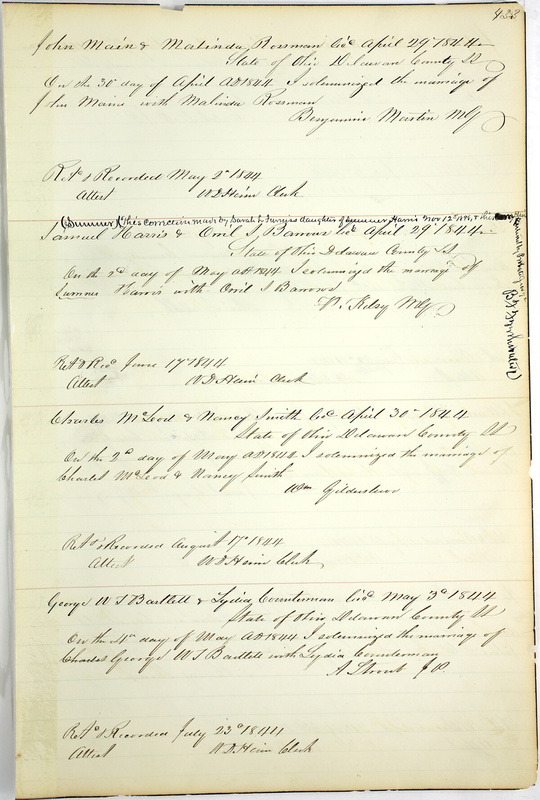 423
John Main & Malinda Rossman Lic^d April 29 1844
State of Ohio Delawar County SS
On the 30 day of April AD 1844 I solemnized the marriage of
John Main with Malinda Rossman
Benjamin Martin MG
Ret^d & Recorded May 2^d 1844
Attest W D Heim Clerk
(Sumner) this correction made by Sarah L daughter of Sumner Harris Nov 12
Samuel Harris & Orril S Barrows Lic^d April 29 1844
State of Ohio Delawar County SS
On the 2^d day of May AD 1844 I solemnized the marriage of
Sumner Harris with Orril S Barrows
Kelsy MG
Ret^d & Rec^d June 17 1844
Attest W D Heim Clerk
Charles McLeod & Nancy Smith Lic^d April 30 1844
State of Ohio Delawar County SS
On the 2^d day of May AD 1844 I solemnized the marriage of
Charles McLeod & Nancy Smith
Wm Gildersleeve
Ret^d & Recorded August 17 1844
Attest W D Heim Clerk
George W T Bartlett & Lydia Counterman Lic^d May 3^d 1844
State of Ohio Delawar County SS
On the 4th day of May AD 1844 I solemnized the marriage of
Charles George W T Bartlett with Lydia Counterman
A Strout JP
Ret^d & Recorded July 23^d 1844
Attest W D Heim Clerk